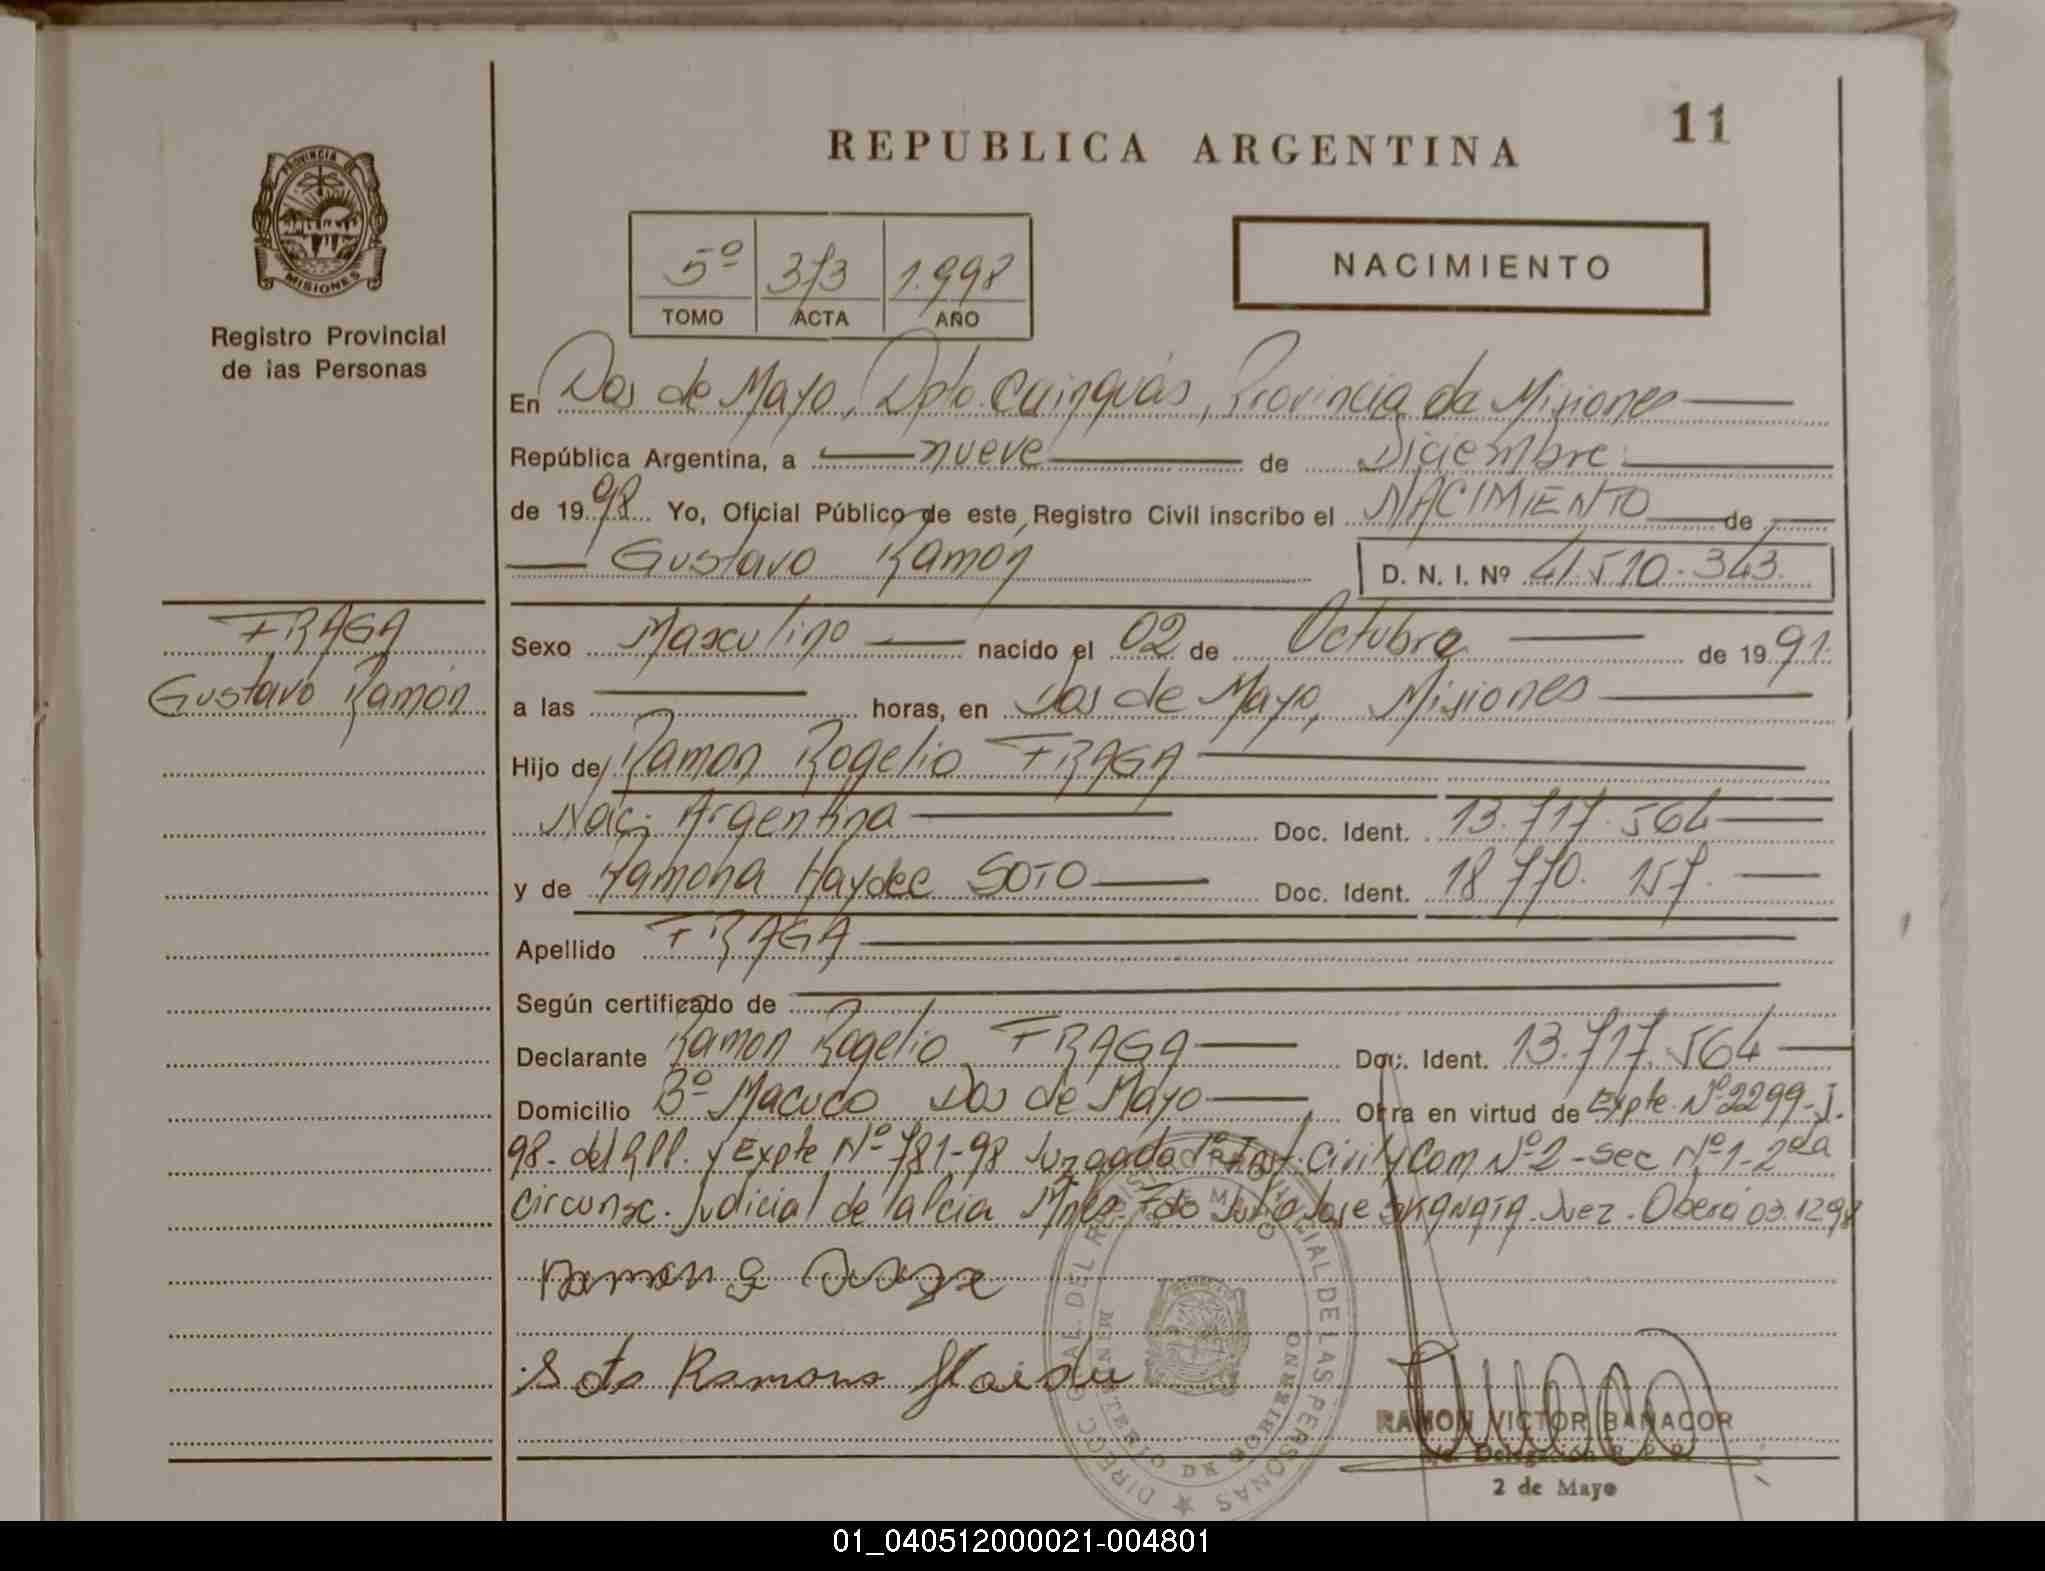 11
REPUBLICA ARGENTINA
PROVINCIA DE
MISIONES
Registro Provincial
de las Personas
5º 373 1.998
TOMO ACTA AÑO
NACIMIENTO
En Dos de Mayo, Dpto. Cainguás, Provincia de Misiones
República Argentina, a nueve de Diciembre
de 1998 Yo, Oficial Público de este Registro Civil inscribo el NACIMIENTO de
Gustavo Ramón D. N. I. Nº 41.510.343.
FRAGA
Gustavo Ramón
Sexo Masculino nacido el 02 de Octubre de 1991.
a las horas, en Dos de Mayo, Misiones
Hijo de Ramon Rogelio FRAGA
Nac. Argentina Doc. Ident. 13.717.564
y de Ramona Haydee SOTO Doc. Ident. 18.770.157.
Apellido FRAGA
Según certificado de
Declarante Ramon Rogelio FRAGA Doc. Ident. 13.717.564
Domicilio Bº Macuco Dos de Mayo Obra en virtud de Expte. Nº 2299-I.
98- del RPP. y Expte Nº 781-98 Juzgado 1º Inst. Civil y Com Nº 2 - Sec Nº 1 - 2da
Circunsc. Judicial de la Pcia Mnes Fdo Julio Jose Juez. Oberá 03.12.98
Ramon
Soto Ramona Haidu
DIRECC. GRAL. DEL REGISTRO PROVINCIAL DE LAS PERSONAS
MINISTERIO DE GOBIERNO
DOS DE MAYO
RAMON VICTOR BANACOR
Delegación R. P. P.
2 de Mayo
01_040512000021-004801